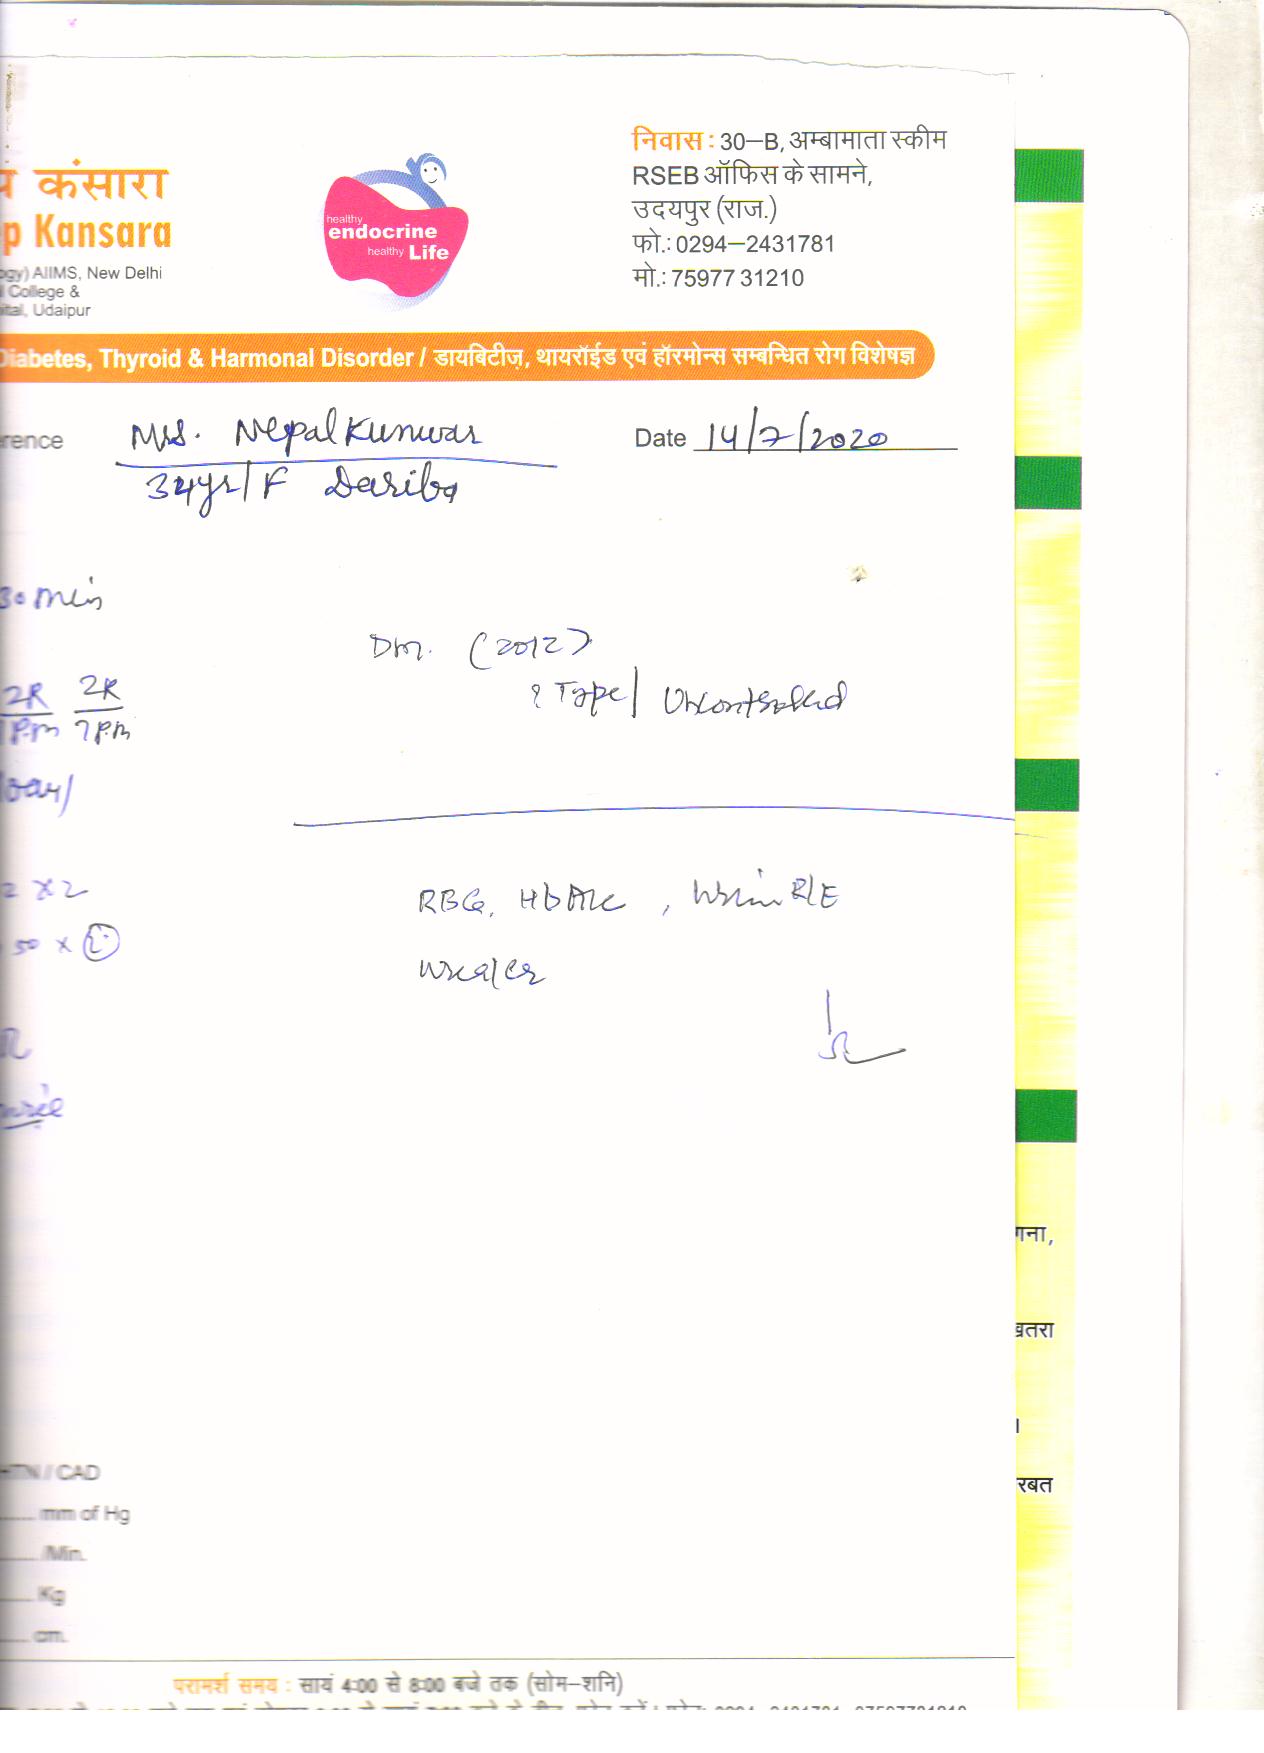 कंसारा
p Kansara
ogy) AIIMS, New Delhi
College &
ital, Udaipur
healthy
endocrine
healthy Life
निवास : 30–B, अम्बामाता स्कीम
RSEB ऑफिस के सामने,
उदयपुर (राज.)
फो.: 0294–2431781
मो.: 75977 31210
Diabetes, Thyroid & Harmonal Disorder / डायबिटीज़, थायरॉईड एवं हॉरमोन्स सम्बन्धित रोग विशेषज्ञ
rence Mrs. Nepal Kunwar Date 14/7/2020
34yr/F Dariba
30 min
DM. (2012)
? Type / Uncontrolled
2R 2R
1 P.m 7 P.m
Day/
2 x 2
RBG, HbA1c, Urine R/E
50 x
Urea/Cr
HTN / CAD
mm of Hg
/Min.
Kg
cm.
गना,
खतरा
रबत
परामर्श समय : सायं 4:00 से 8:00 बजे तक (सोम–शनि)